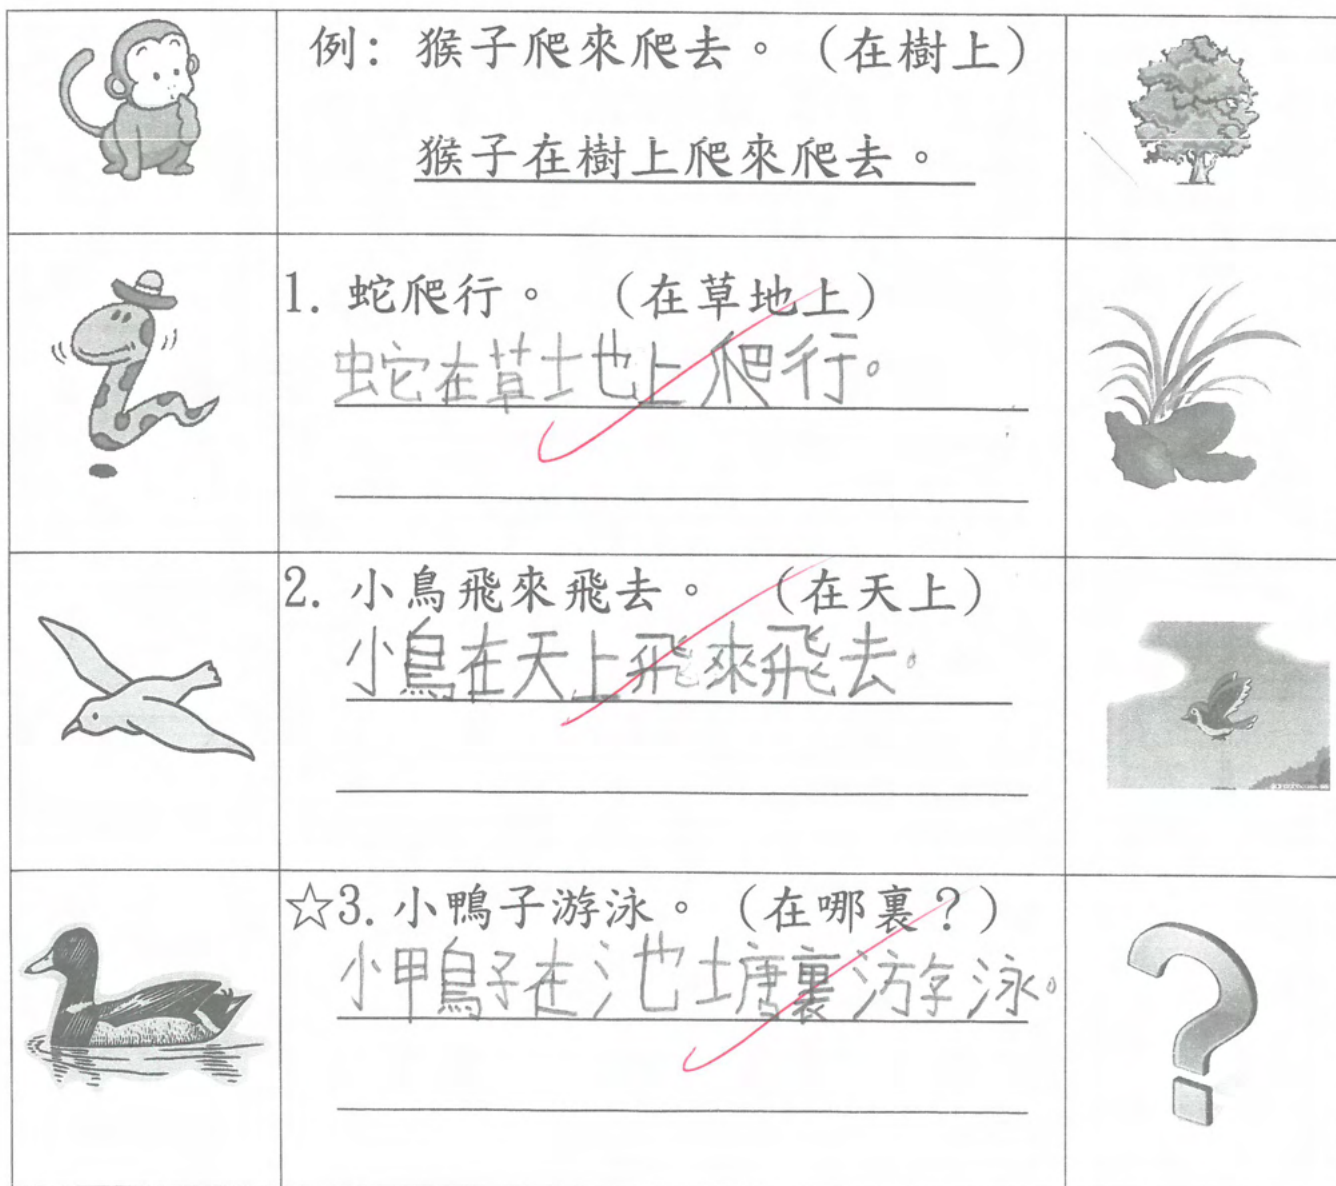 例: 猴子爬來爬去。(在樹上)
猴子在樹上爬來爬去。
1. 蛇爬行。 (在草地上)
蛇在草地上爬行。
2. 小鳥飛來飛去。 (在天上)
小鳥在天上飛來飛去。
☆3. 小鴨子游泳。(在哪裏?)
小鴨子在池塘裏游泳。